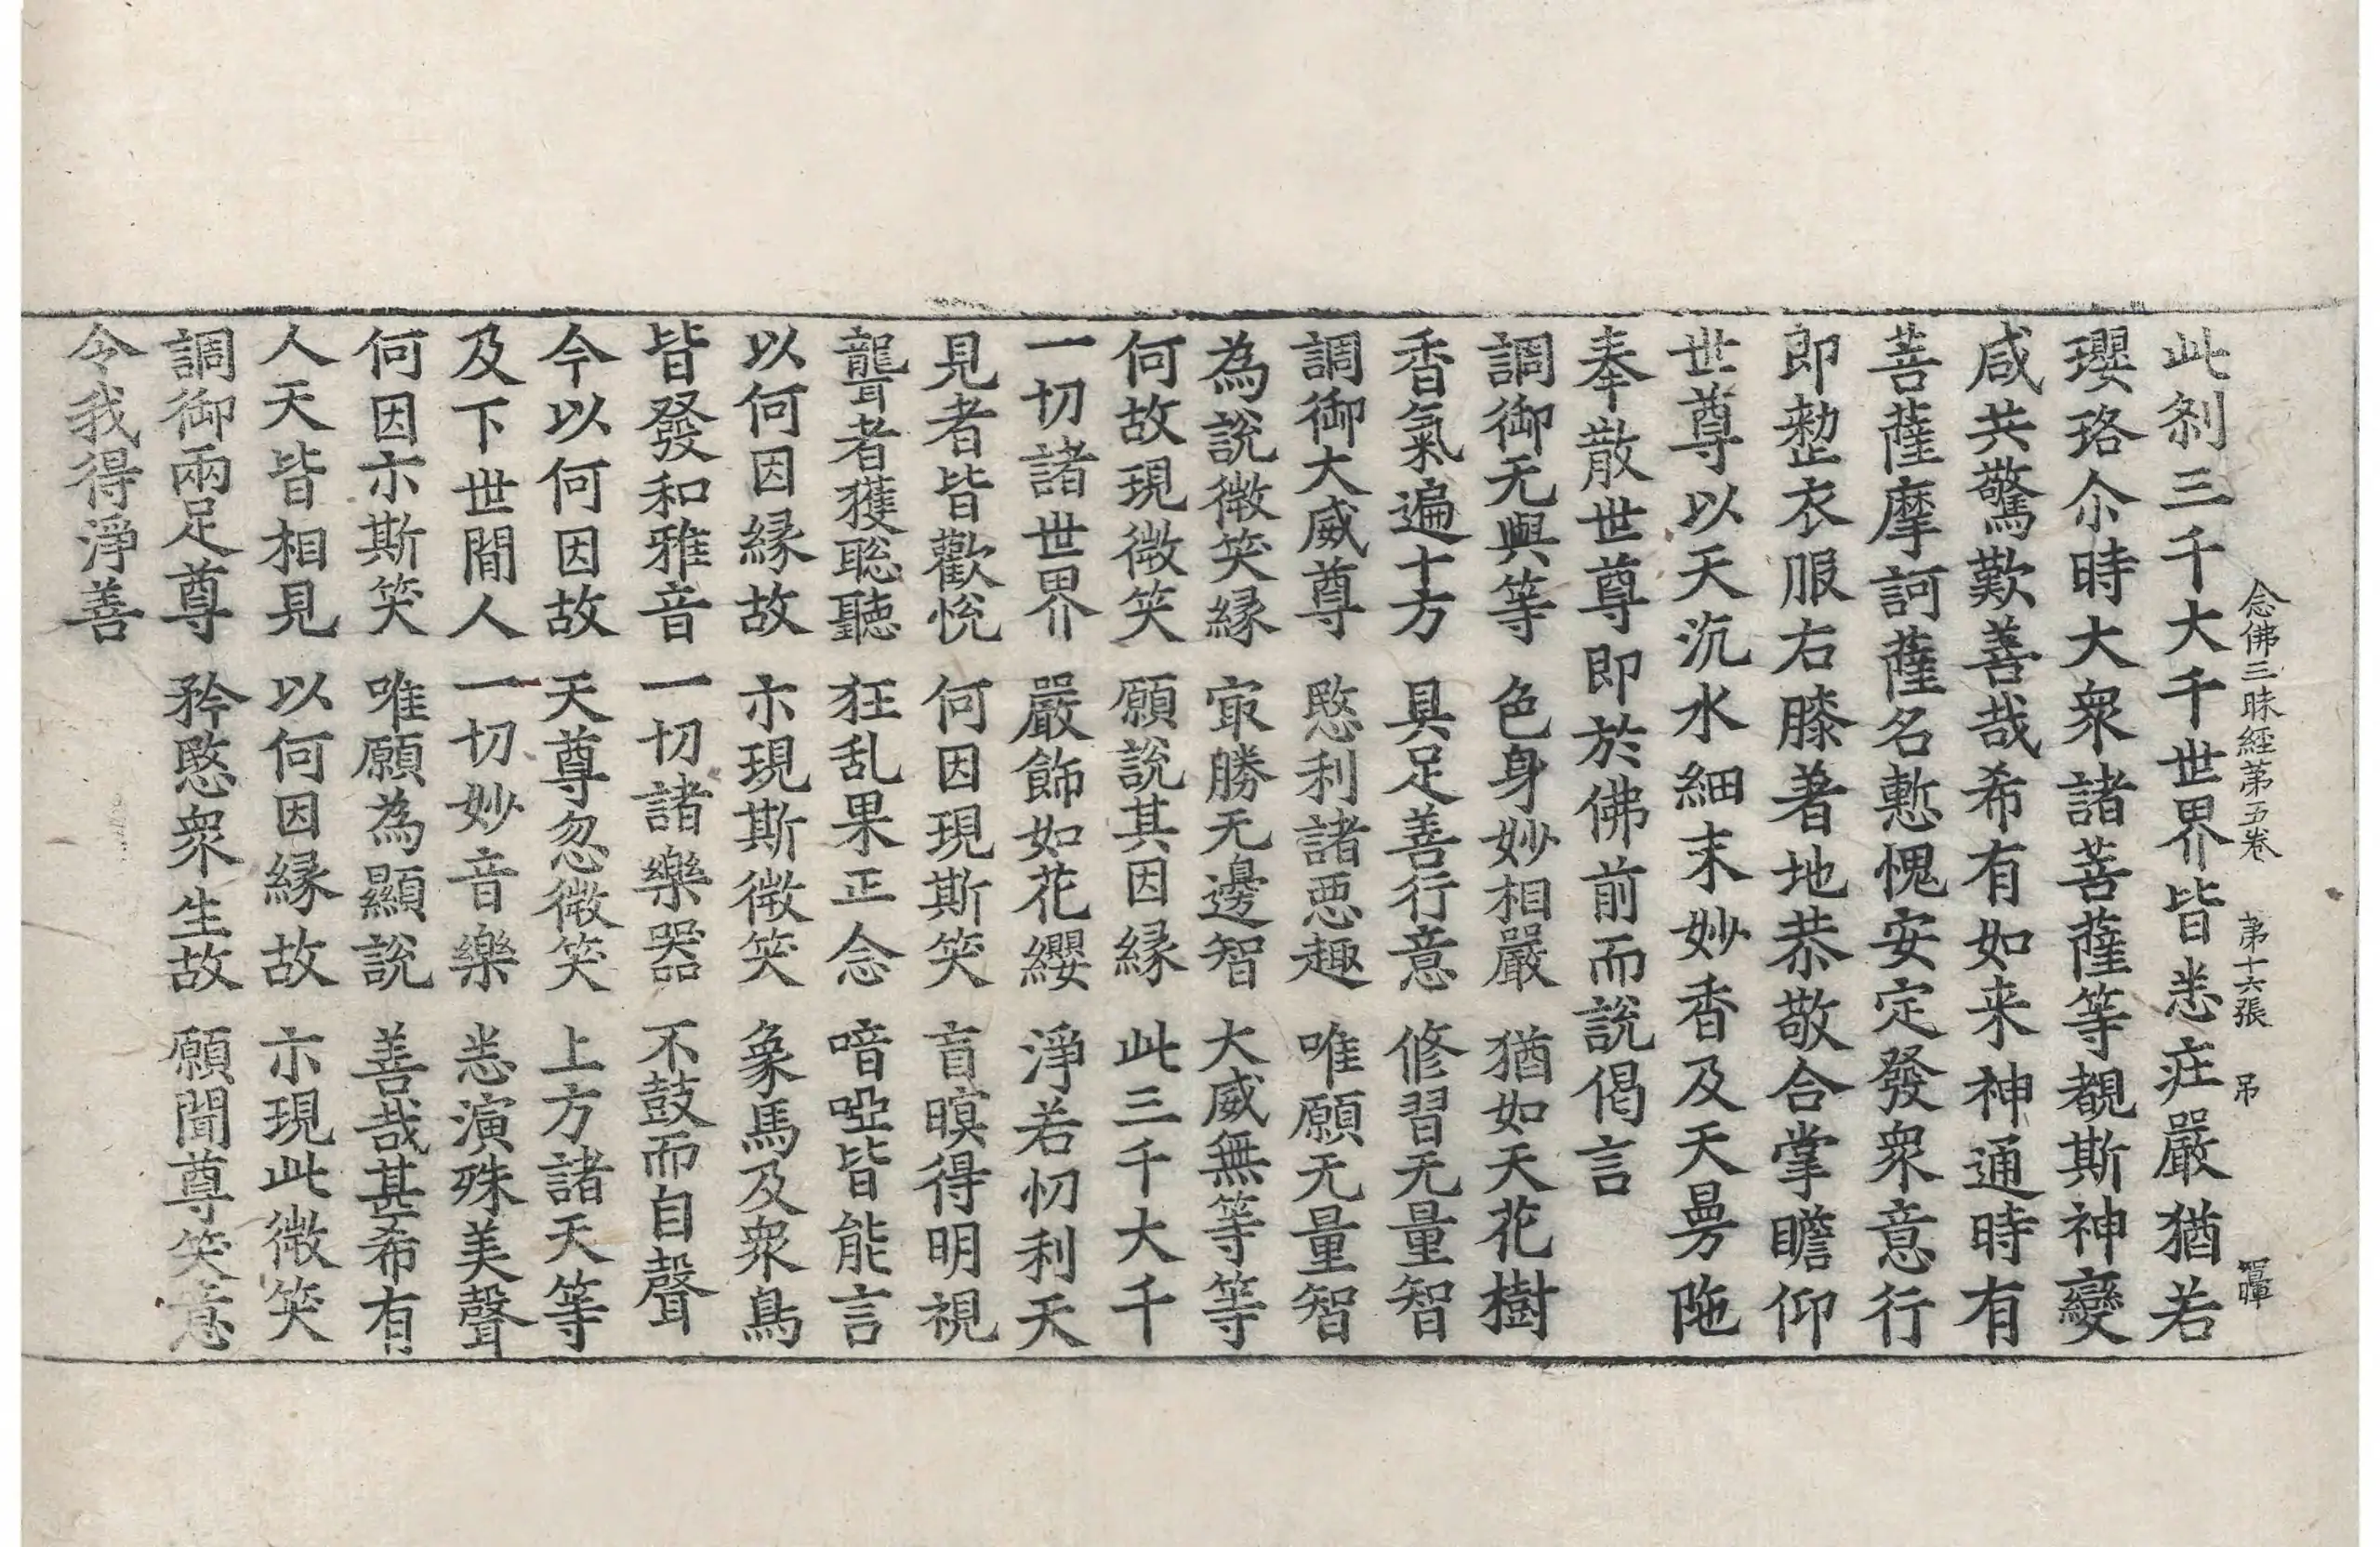 念佛三昧經第五卷　第十六張　吊
此剎三千大千世界皆悉莊嚴猶若
瓔珞尒時大衆諸菩薩等覩斯神變
咸共驚歎善哉希有如来神通時有
菩薩摩訶薩名慙愧安定發衆意行
即整衣服右膝著地恭敬合掌瞻仰
世尊以天沉水細末妙香及天曼陁
奉散世尊即於佛前而說偈言
調御无與等　色身妙相嚴　猶如天花樹
香氣遍十方　具足善行意　修習无量智
調御大威尊　愍利諸惡趣　唯願无量智
為說微笑緣　冣勝无邊智　大威無等等
何故現微笑　願說其因緣　此三千大千
一切諸世界　嚴飾如花纓　淨若忉利天
見者皆歡悅　何因現斯笑　盲瞑得明視
聾者獲聡聽　狂乱果正念　喑啞皆能言
以何因緣故　尒現斯微笑　象馬及衆鳥
皆發和雅音　一切諸樂器　不鼓而自聲
今以何因故　天尊忽微笑　上方諸天等
及下世閒人　一切妙音樂　悉演殊美聲
何因尒斯笑　唯願為顯說　善哉甚希有
人天皆相見　以何因緣故　尒現此微笑
調御兩足尊　矜愍衆生故　願聞尊笑意
令我得淨善